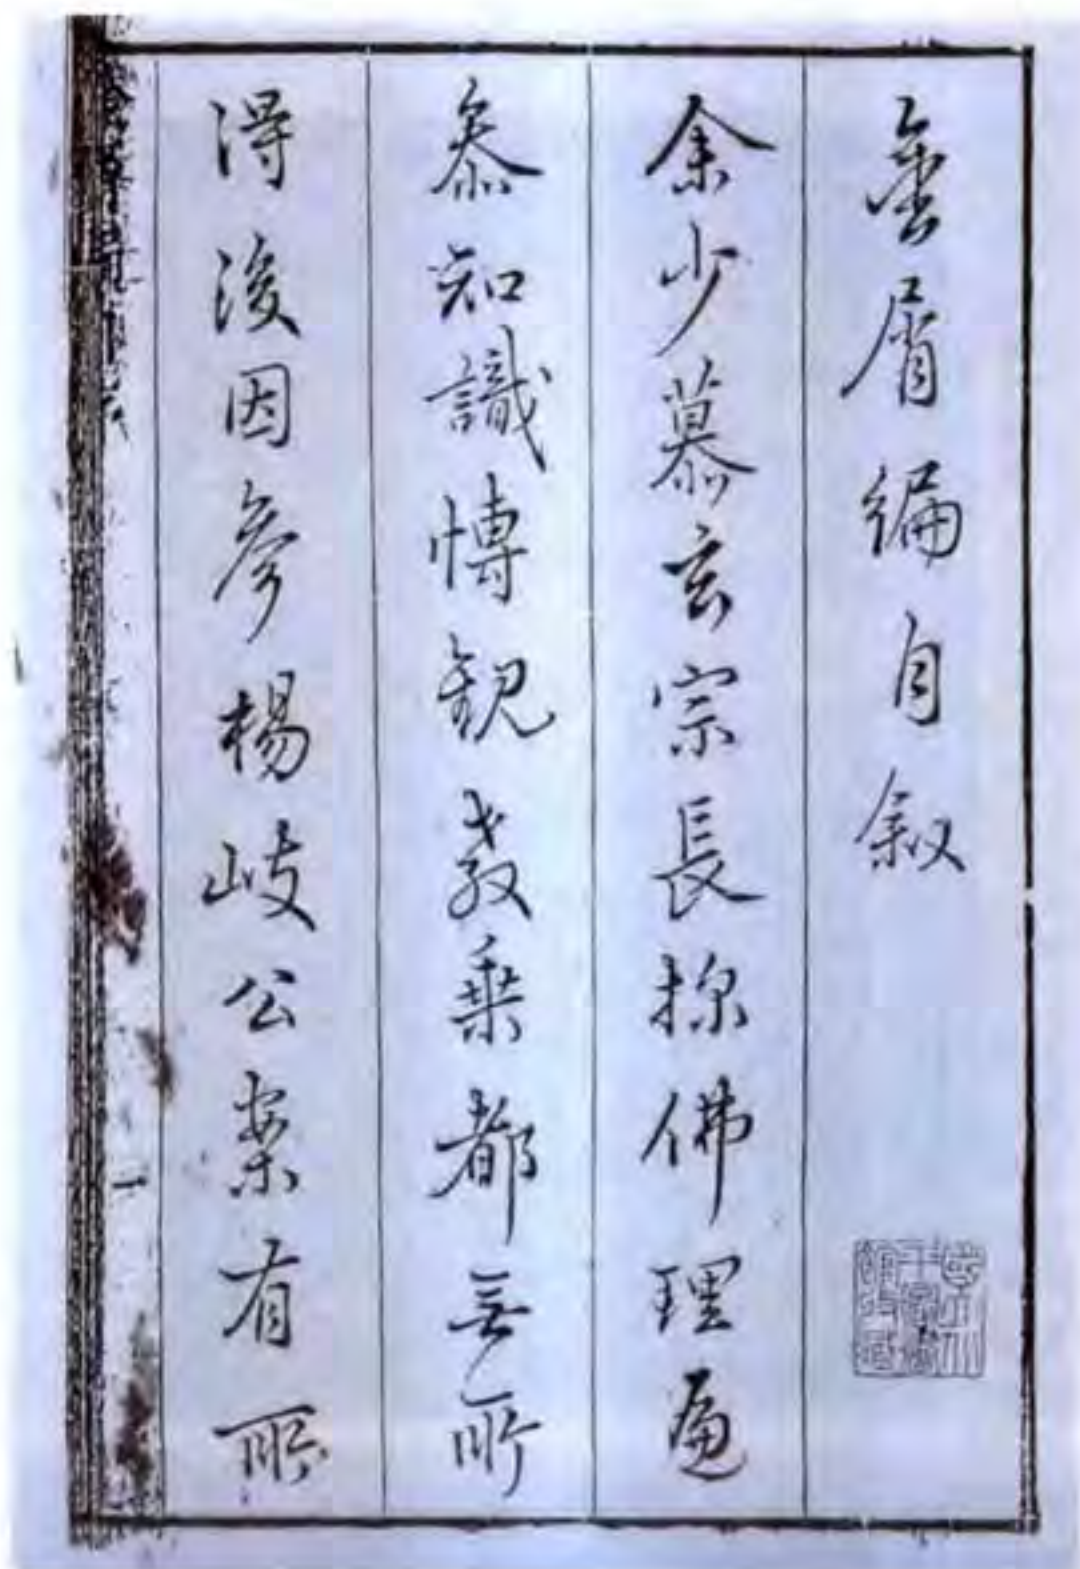 金屑編自叙
余少慕玄宗長探佛理遍
叅知識博觀教乗都無所
得後因參楊岐公案有所
一